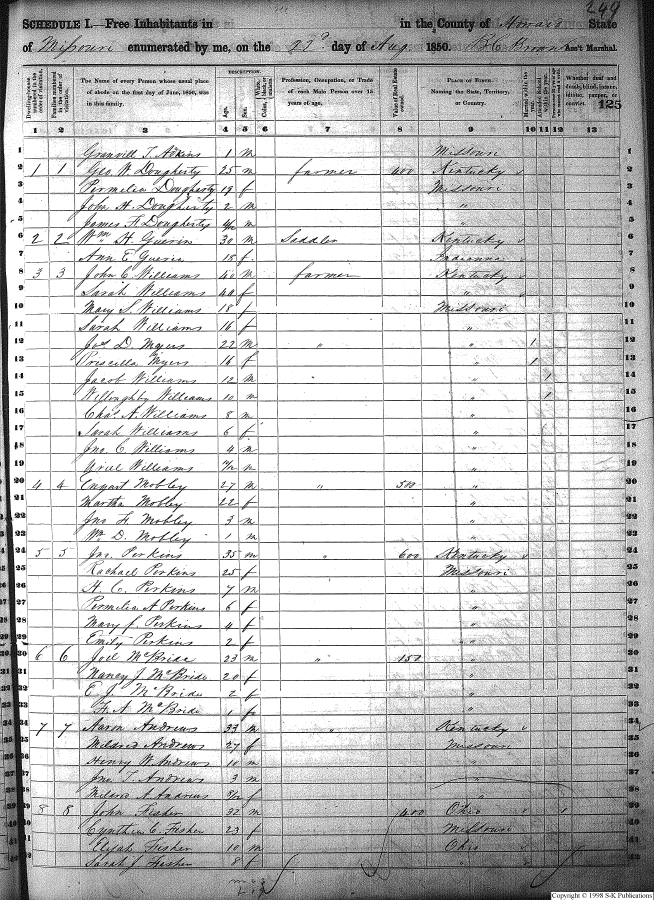 249
SCHEDULE I.—Free Inhabitants in in the County of Howard State
of Missouri enumerated by me, on the 22d day of Aug. 1850. B C Brown Ass't Marshal.
125
Dwelling-houses numbered in the order of visitation.
Families numbered in the order of visitation.
The Name of every Person whose usual place of abode on the first day of June, 1850, was in this family.
DESCRIPTION.
Age.
Sex.
White, black, or mulatto.
Profession, Occupation, or Trade of each Male Person over 15 years of age.
Value of Real Estate owned.
PLACE OF BIRTH. Naming the State, Territory, or Country.
Married within the year.
Attended School within the year.
Whether deaf and dumb, blind, insane, idiotic, pauper, or convict.
1 2 3 4 5 6 7 8 9 10 11 12 13
1 Granvill T. Adkins 1 m Missouri 1
2 1 1 Geo. W. Dougherty 25 m farmer 400 Kentucky 2
3 Permelia Dougherty 19 f Missouri 3
4 John H. Dougherty 2 m " 4
5 James F. Dougherty m " 5
6 2 2 Wm. H. Guerin 30 m Saddler Kentucky 6
7 Ann E. Guerin 18 f Indianna 7
8 3 3 John C. Williams 40 m farmer Kentucky 8
9 Sarah Williams 40 f " 9
10 Mary S. Williams 18 f Missouri 10
11 Sarah Williams 16 f " 11
12 Jos. D. Myers 22 m " " 1 12
13 Priscilla Myers 16 f " 1 13
14 Jacob Williams 12 m " 1 14
15 Willoughby Williams 10 m " 1 15
16 Chas. A. Williams 8 m " 16
17 Sarah Williams 6 f " 17
18 Jno. C. Williams 4 m " 18
19 Williams m " 19
20 4 4 Mobley 27 m " 500 " 20
21 Martha Mobley 22 f " 21
22 Jno. F. Mobley 3 m " 22
23 Wm. D. Mobley 1 m " 23
24 5 5 Jas. Perkins 35 m " 600 Kentucky 24
25 Rachael Perkins 25 f Missouri 25
26 H. C. Perkins 7 m " 26
27 Permelia A Perkins 6 f " 27
28 Mary J. Perkins 4 f " 28
29 Emily Perkins 2 f " 29
30 6 6 Joel McBride 23 m " 150 " 30
31 Nancy J. McBride 20 f " 31
32 E. J. McBride 2 f " 32
33 F. A. McBride 1 f " 33
34 7 7 Aaron Andrews 33 m " Kentucky 34
35 Mildred Andrews 27 f Missouri 35
36 Henry W. Andrews 10 m " 36
37 Jno. T. Andrews 3 m " 37
38 Mildred A. Andrews f " 38
39 8 8 John Fisher 32 m 400 Ohio 1 39
40 Cynthia C. Fisher 23 f Missouri 40
41 Elijah Fisher 10 m Ohio 41
42 Sarah J. Fisher 8 f " 42
Copyright © 1998 S-K Publications